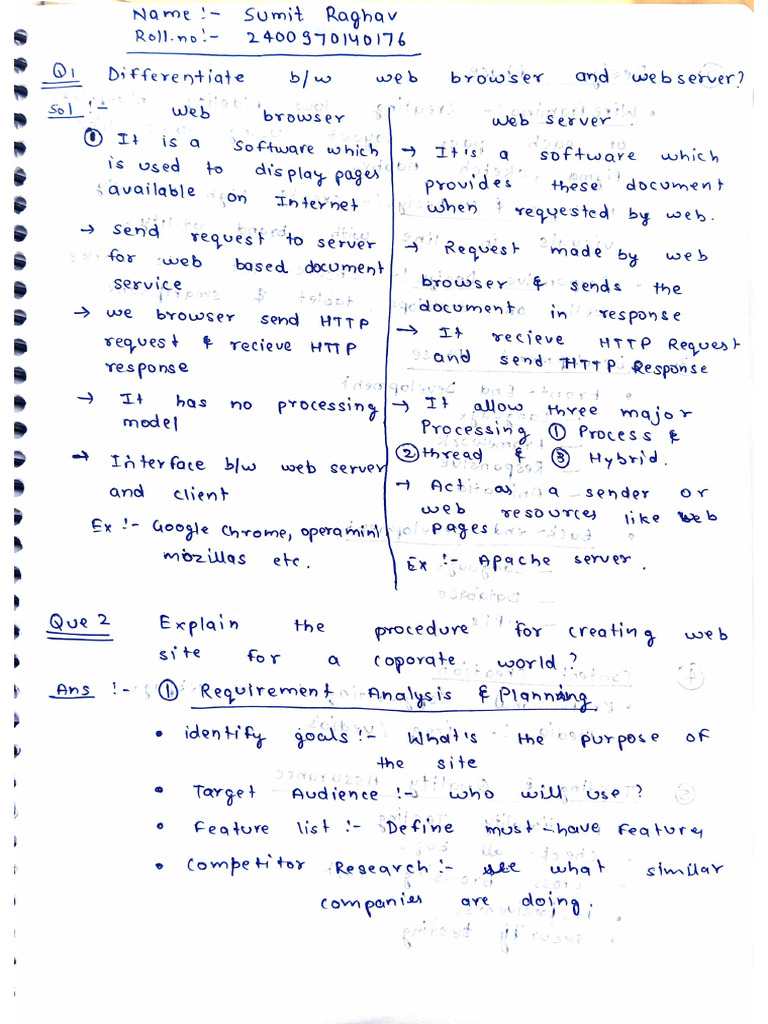 Name :- Sumit Raghav
Roll.no :- 2400970140176
Q1 Differentiate b/w web browser and webserver?
Sol :- web browser
① It is a software which
is used to display pages
available on Internet
→ send request to server
for web based document
service
→ we browser send HTTP
request & recieve HTTP
response
→ It has no processing
model
→ Interface b/w web server
and client
Ex :- Google Chrome, operamini
mozillas etc.
web server
→ It's a software which
provides these document
when requested by web.
→ Request made by web
browser & sends the
document in response
→ It recieve HTTP Request
and send HTTP Response
→ It allow three major
Processing ① Process &
② thread & ③ Hybrid.
→ Act as a sender or
web resources like web
pages
Ex :- Apache server.
Que 2 Explain the procedure for creating web
site for a coporate world?
Ans :- ① Requirement Analysis & Planning
• identify goals :- What's the purpose of
the site
• Target Audience :- who will use?
• Feature list :- Define must-have features
• Competitor Research :- see what similar
companies are doing.